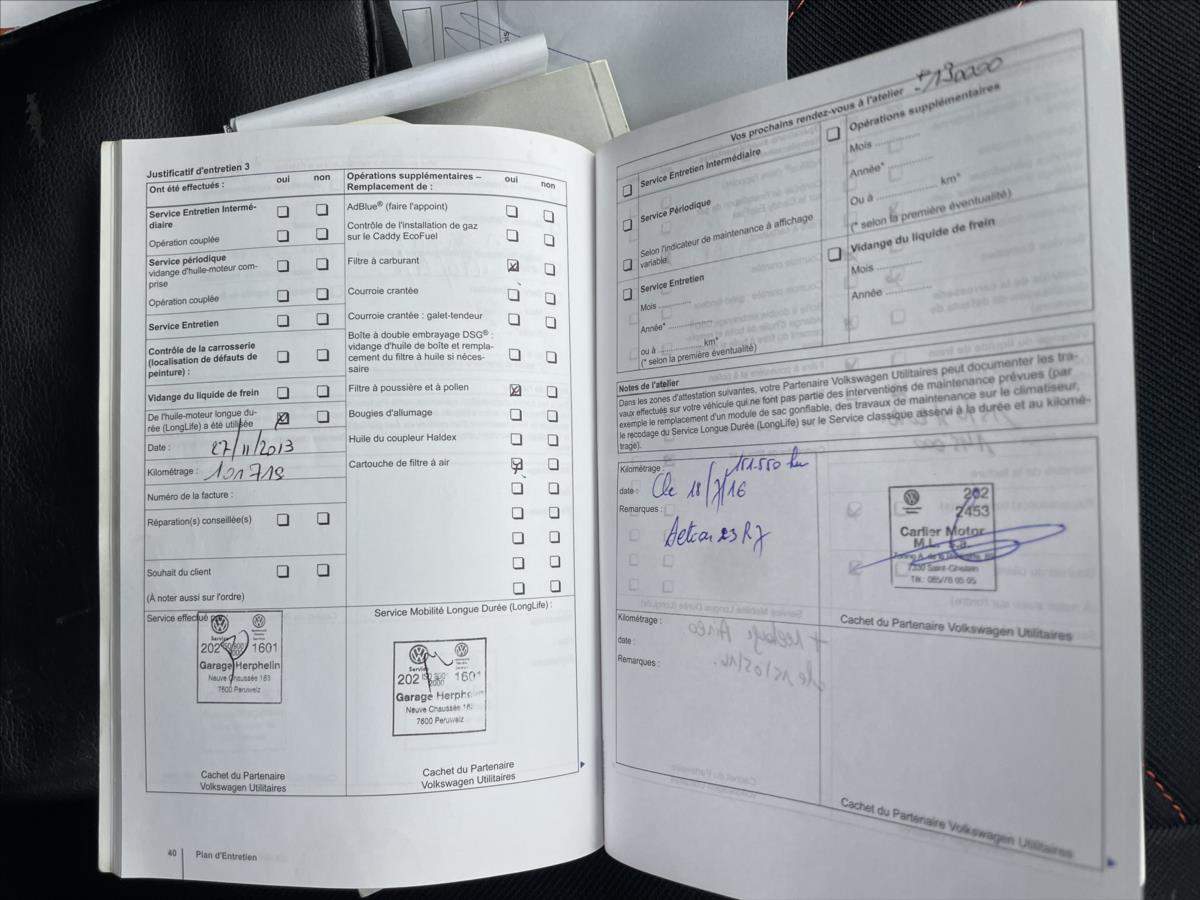 Justificatif d'entretien 3
Ont été effectués :
oui
non
Service Entretien Intermé-
diaire
Opération couplée
Service périodique
vidange d'huile-moteur com-
prise
Opération couplée
Service Entretien
Contrôle de la carrosserie
(localisation de défauts de
peinture) :
Vidange du liquide de frein
De l'huile-moteur longue du-
rée (LongLife) a été utilisée
Date : 27/11/2013
Kilométrage : 101 719
Numéro de la facture :
Réparation(s) conseillée(s)
Souhait du client
(À noter aussi sur l'ordre)
Service effectué
Service
202 1601
Garage Herphelin
Neuve Chaussée 163
7600 Peruwelz
Cachet du Partenaire
Volkswagen Utilitaires
Opérations supplémentaires –
Remplacement de :
oui
non
AdBlue® (faire l'appoint)
Contrôle de l'installation de gaz
sur le Caddy EcoFuel
Filtre à carburant
Courroie crantée
Courroie crantée : galet-tendeur
Boîte à double embrayage DSG® :
vidange d'huile de boîte et rempla-
cement du filtre à huile si néces-
saire
Filtre à poussière et à pollen
Bougies d'allumage
Huile du coupleur Haldex
Cartouche de filtre à air
Service Mobilité Longue Durée (LongLife) :
Service
202 1601
Garage Herphelin
Neuve Chaussée 163
7600 Peruwelz
Cachet du Partenaire
Volkswagen Utilitaires
40
Plan d'Entretien
Vos prochains rendez-vous à l'atelier
130000
Service Entretien Intermédiaire
Service Périodique
Selon l'indicateur de maintenance à affichage
variable.
Service Entretien
Mois ............
Année* ............
ou à ............ km*
(* selon la première éventualité)
Opérations supplémentaires
Mois ............
Année* ............
Ou à ............ km*
(* selon la première éventualité)
Vidange du liquide de frein
Mois ............
Année ............
Notes de l'atelier
Dans les zones d'attestation suivantes, votre Partenaire Volkswagen Utilitaires peut documenter les tra-
vaux effectués sur votre véhicule qui ne font pas partie des interventions de maintenance prévues (par
exemple le remplacement d'un module de sac gonflable, des travaux de maintenance sur le climatiseur,
le recodage du Service Longue Durée (LongLife) sur le Service classique asservi à la durée et au kilomé-
trage).
Kilométrage : 151.550 km
date : Le 18/7/16
Remarques :
23R7
202
2453
Carlier Motor
M.L. s.a.
7330 Saint-Ghislain
Cachet du Partenaire Volkswagen Utilitaires
Kilométrage :
date :
Remarques :
Cachet du Partenaire Volkswagen Utilitaires